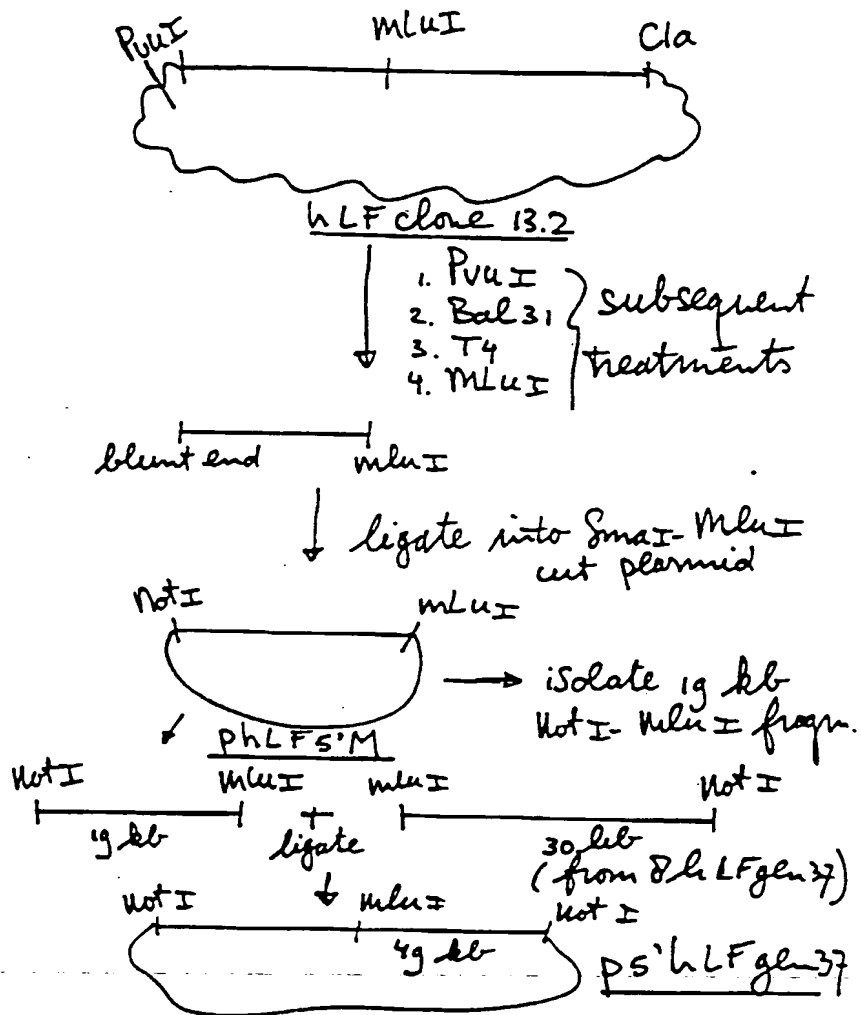 PvuI mLuI Cla
hLF clone 13.2
1. PvuI
2. Bal31
3. T4
4. MLuI
subsequent
treatments
blunt end mluI
ligate into SmaI-MluI
cut plasmid
NotI mLuI
isolate 19 kb
NotI-mluI fragm.
phLF5'M
NotI mluI mluI NotI
19 kb + 30 kb
ligate (from 8hLFgen37)
NotI mluI NotI
49 kb
p5'hLFgen37